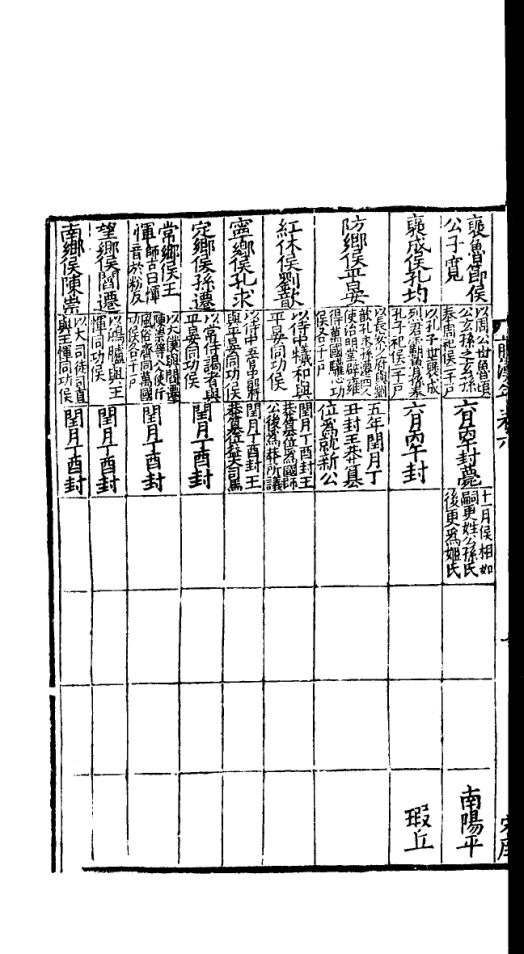 襃魯節侯
公子寬
以周公世魯頃
公玄孫之玄孫
奉周祀侯二千戶
六月丙午封薨
十一月侯相如
嗣更姓公孫氏
後更爲姬氏
南陽平
襃成侯孔均
以孔子世襃成
烈君霸曾孫奉
孔子祀侯二千戶
六月丙午封
瑕丘
防鄉侯平晏
以長安少府與劉
歆孔永孫遷四人
使治明堂辟雍
得萬國驩心功
侯各千戶
五年閏月丁
丑封王莽篡
位爲就新公
紅休侯劉歆
以侍中犧和與
平晏同功侯
閏月丁酉封王
莽篡位爲國師
公後爲莽所誅
寧鄉侯孔永
以侍中五官中郎將
與平晏同功侯
閏月丁酉封王
莽篡位爲大司馬
定鄉侯孫遷
以常侍謁者與
平晏同功侯
閏月丁酉封
常鄉侯王
惲師古曰惲
音於粉反
以太僕與閻遷
陳崇等八人使行
風俗齊同萬國
功侯各千戶
閏月丁酉封
望鄉侯閻遷
以鴻臚與王
惲同功侯
閏月丁酉封
南鄉侯陳崇
以大司徒司直
與王惲同功侯
閏月丁酉封